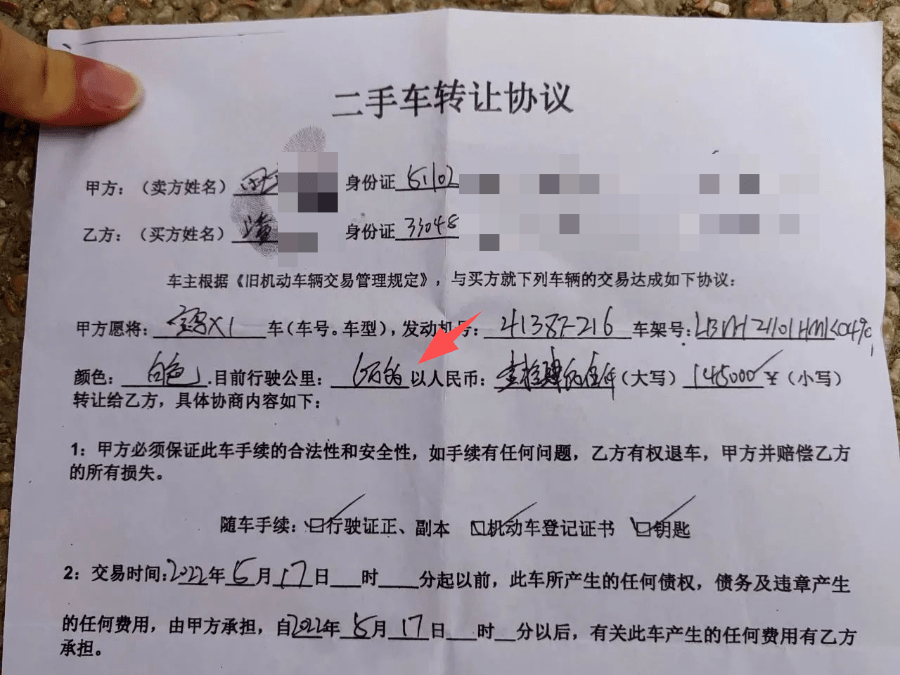 二手车转让协议
甲方：（卖方姓名） 身份证 51102
乙方：（买方姓名）潼 身份证 33048
车主根据《旧机动车辆交易管理规定》，与买方就下列车辆的交易达成如下协议：
甲方愿将：宝马X1 车（车号。车型），发动机号： 车架号：
颜色：白色.目前行驶公里： 以人民币：壹拾肆万伍仟（大写）145000¥（小写）
转让给乙方，具体协商内容如下：
1：甲方必须保证此车手续的合法性和安全性，如手续有任何问题，乙方有权退车，甲方并赔偿乙方
的所有损失。
随车手续：☑行驶证正、副本 ☑机动车登记证书 ☑钥匙
2：交易时间：2022年5月17日___时___分起以前，此车所产生的任何债权，债务及违章产生
的任何费用，由甲方承担，自2022年5月17日___时__分以后，有关此车产生的任何费用有乙方
承担。